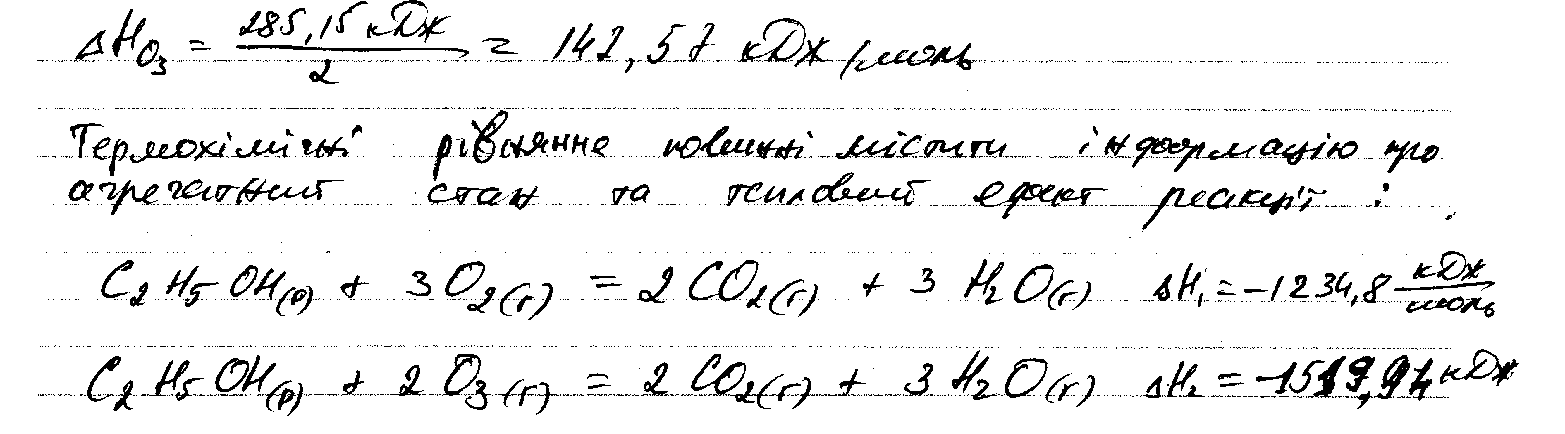 ΔH_O₃ = 285,15 кДж / 2 = 142,57 кДж/моль
Термохімічні рівняння повинні містити інформацію про
агрегатний стан та тепловий ефект реакції :
C₂H₅OH(р) + 3O₂(г) = 2CO₂(г) + 3H₂O(г) ΔH₁ = -1234,8 кДж/моль
C₂H₅OH(р) + 2O₃(г) = 2CO₂(г) + 3H₂O(г) ΔH₂ = -1519,94 кДж